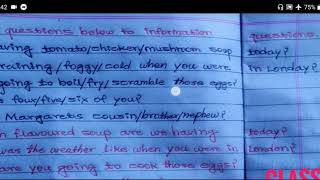 :42
75%
questions below to information questions.
aving tomato/chicken/mushroom soup today?
raining/foggy/cold when you were in Londay?
going to boil/fry/scramble those eggs?
four/five/six of you?
Margarets cousin/brother/nephew?
h flavoured soup are we having today?
was the weather like when you were in London?
are you going to cook those eggs?
CLASS